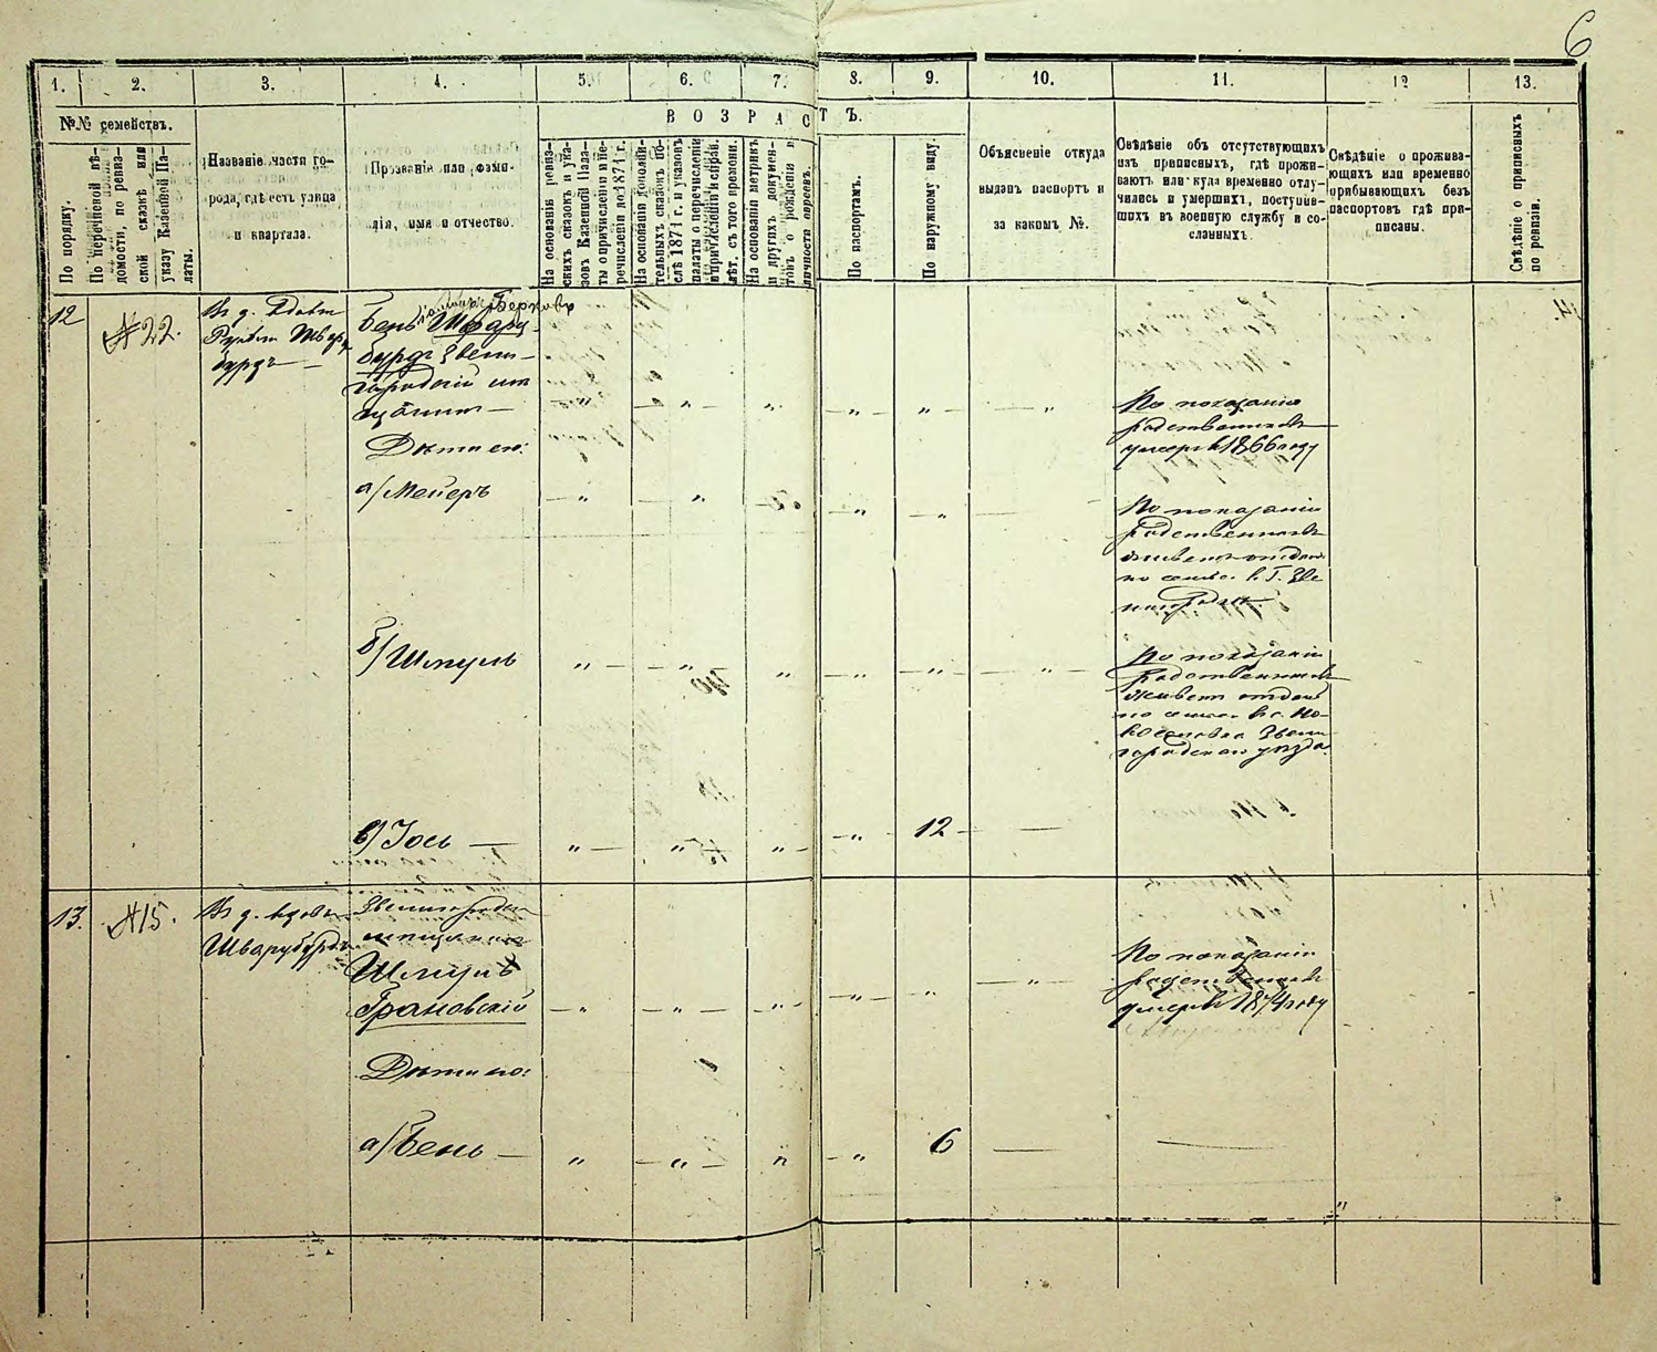 6
1. 2. 3. 4. 5. 6. 7. 8. 9. 10. 11. 12 13.
№№ семействъ.
По порядку.
По перечневой вѣ-
домости, по ревиз-
ской сказкѣ или
указу Казенной Па-
латы.
Названіе части го-
рода, гдѣ есть улица
и квартала.
Прозваніе или фами-
лія, имя и отчество.
ВОЗРАСТЪ.
На основаніи ревиз-
скихъ сказокъ и ука-
зовъ Казенной Пала-
ты о причисленіи и пе-
речисленіи до 1871 г.
На основаніи дополни-
тельныхъ сказокъ по-
слѣ 1871 г. и указовъ
палаты о перечисленіи
и причисленіи и справ.
лѣт. съ того времени.
На основаніи метрикъ
и другихъ докумен-
товъ о рожденіи и
личности евреевъ.
По паспортамъ.
По наружному виду.
Объясненіе откуда
выданъ паспортъ и
за какимъ №.
Свѣдѣніе объ отсутствующихъ
изъ приписныхъ, гдѣ прожи-
ваютъ или куда временно отлу-
чились и умершихъ, поступив-
шихъ въ военную службу и со-
сланныхъ.
Свѣдѣніе о прожива-
ющихъ или временно
прибывающихъ безъ
паспортовъ гдѣ при-
писаны.
Свѣдѣніе о приписныхъ
по ревизіи.
12 №22.
Въ д. Вдовы
Шварц
бурдъ
Берковъ
Бень Шварц
бурдъ Звени-
городскій мѣ
щанинъ
По показанію
родственниковъ
умеръ въ 1866 году
Дѣти его:
а) Мейеръ
По показанію
родственниковъ
живетъ отдѣль
но семьею въ г. Зве
нигородкѣ
б) Шмуль
По показанію
родственниковъ
живетъ отдѣль
но семьею въ с. Мо-
Звени
городскаго уѣзда
в) Іось 12
13. №15.
Въ д. вдовы
Шварцбурдъ
Звенигородск
мѣщанинъ
Шмуль
Грановскій
По показанію
родственниковъ
умеръ въ 1874 году
Дѣти его:
а) Бень 6